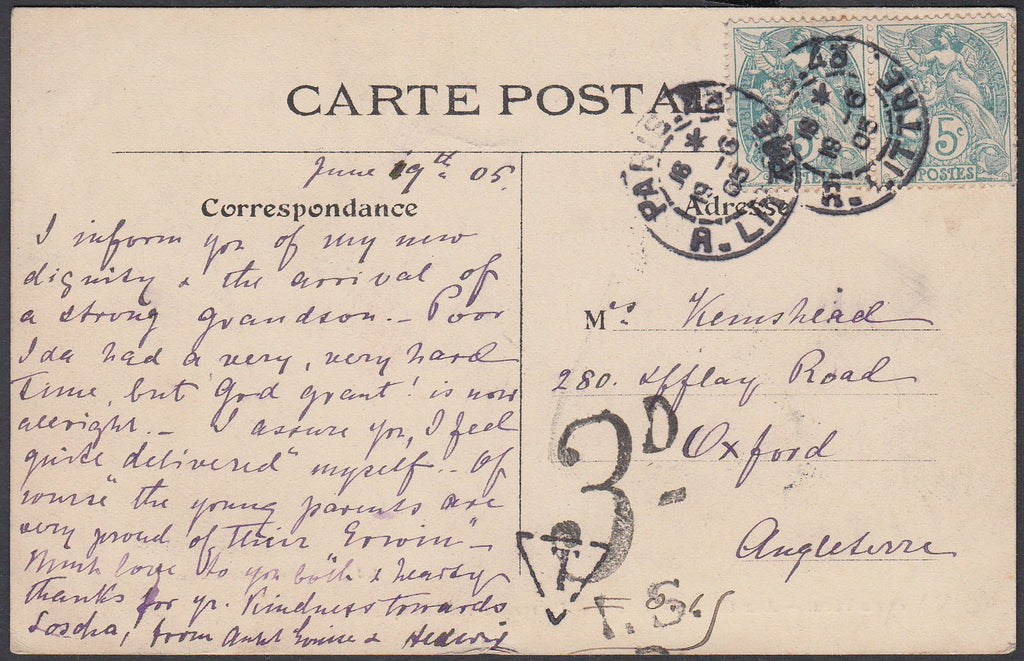 CARTE POSTALE
5c
POSTES
5c
POSTES
PARIS
R. LITTRE
18 * 
19 -6 05
R. LITTRE
18 *
-6 05
June 19th 05.
Correspondance
Adresse
I inform you of my new
dignity & the arrival of
a strong grandson. - Poor
Ida had a very, very hard
time, but "God grant"! is now
allright. - I assure you, I feel
quite "delivered" myself. - Of
course the young parents are
very proud of their "Erwin" -
Much love to you both & hearty
thanks for yr. kindness towards
from & Hedwig
Mrs Kemshead
280. Iffley Road
Oxford
Angleterre
3D
-
T
T. S.